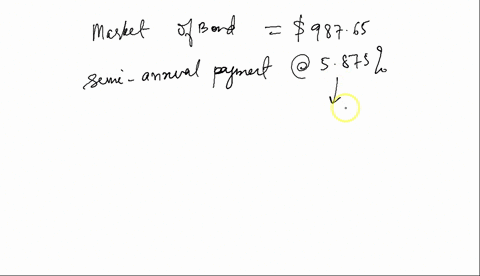 Market of Bond = $987.65
semi-annual payment @ 5.875%